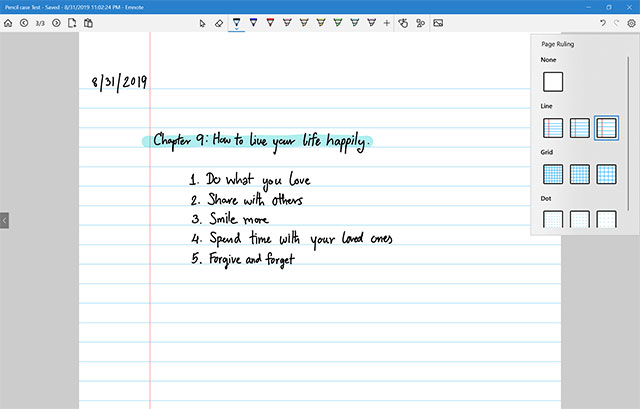 Pencil case Test - Saved - 8/31/2019 11:02:24 PM - Emnote
3/3
Page Ruling
None
Line
Grid
Dot
8/31/2019
Chapter 9: How to live your life happily.
1. Do what you love
2. Share with others
3. Smile more
4. Spend time with your loved ones
5. Forgive and forget